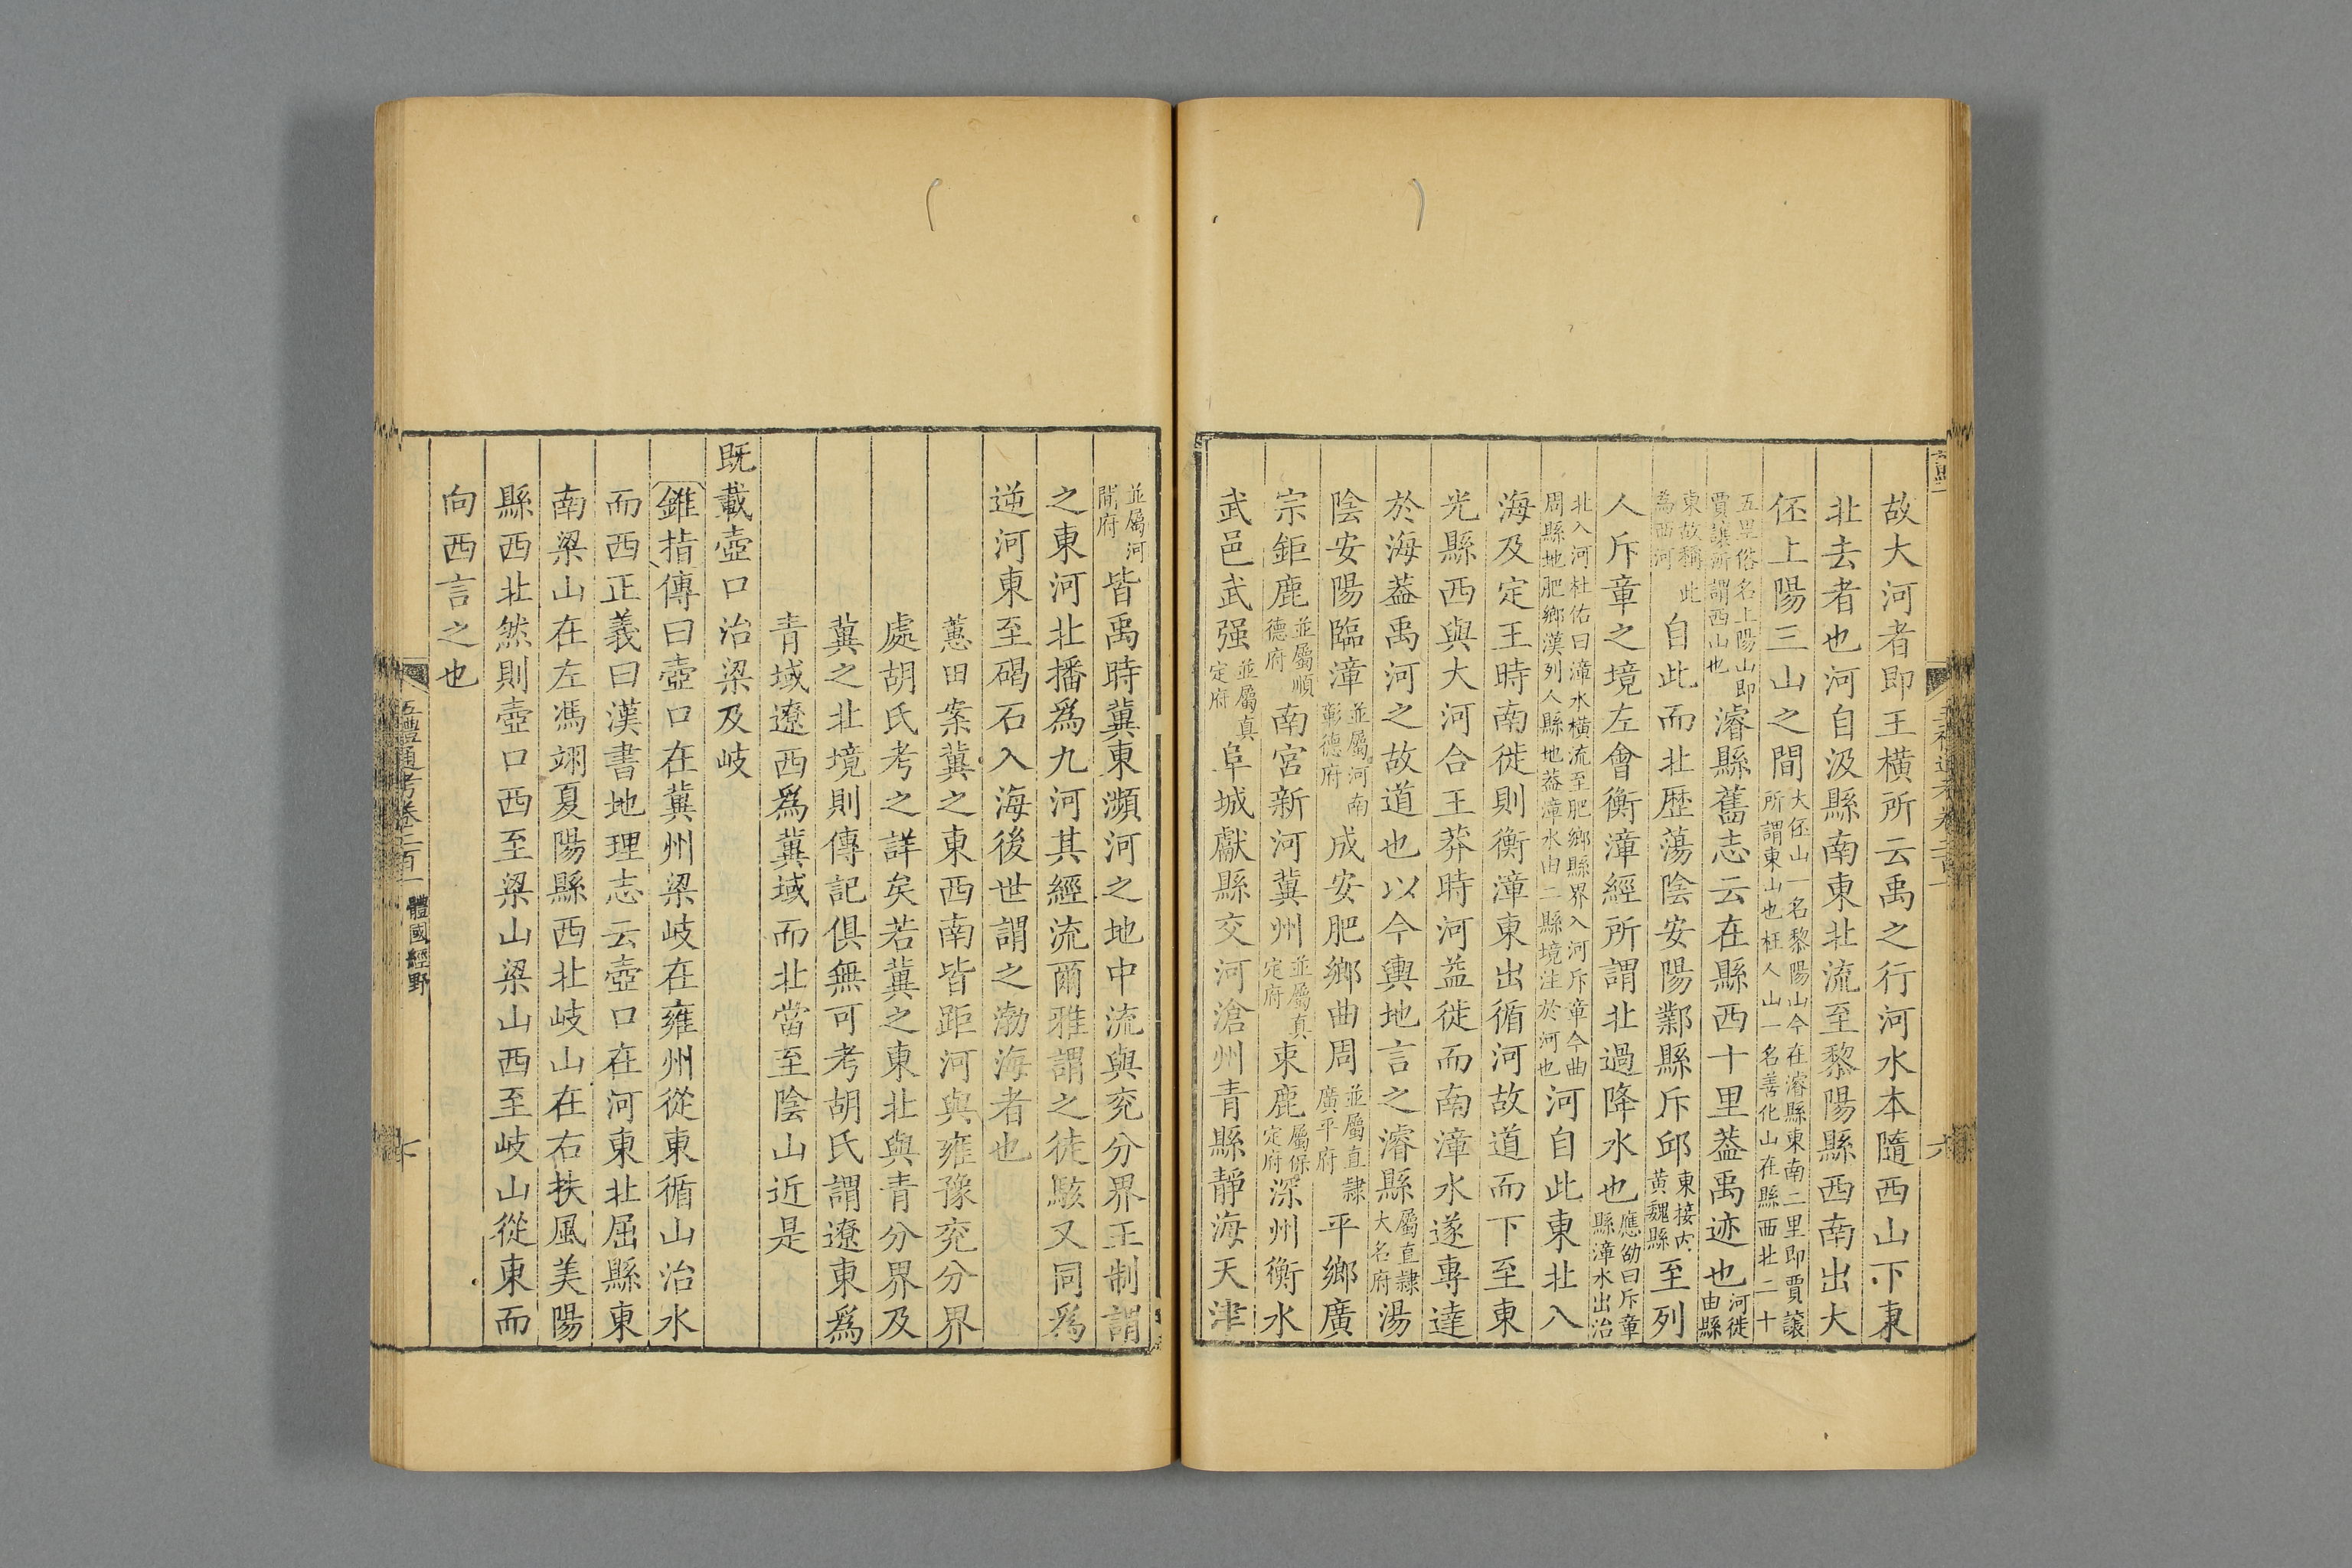 故大河者即王橫所云禹之行河水本隨西山下東
北去者也河自汲縣南東北流至黎陽縣西南出大
伾上陽三山之間大伾山一名黎陽山今在濬縣東南二里即賈讓所謂東山也枉人山一名善化山在縣西北二十
五里俗名上陽山即賈讓所謂西山也濬縣舊志云在縣西十里葢禹迹也河徙由縣
東故稱此為西河自此而北歴蕩陰安陽鄴縣斥邱東接内黄魏縣至列
人斥章之境左會衡漳經所謂北過降水也應劭曰斥章縣漳水出治
北入河杜佑曰漳水橫流至肥鄉縣界入河斥章今曲周縣地肥鄉漢列人縣地葢漳水由二縣境注於河也河自此東北入
海及定王時南徙則衡漳東出循河故道而下至東
光縣西與大河合王莽時河益徙而南漳水遂專達
於海葢禹河之故道也以今輿地言之濬縣屬直隷大名府湯
陰安陽臨漳並屬河南彰德府成安肥鄉曲周並屬直隷廣平府平鄉廣
宗鉅鹿並屬順德府南宮新河冀州並屬真定府束鹿屬保定府深州衡水
武邑武强並屬真定府阜城獻縣交河滄州青縣靜海天津
並屬河間府皆禹時冀東瀕河之地中流與兖分界王制謂
之東河北播爲九河其經流爾雅謂之徒駭又同爲
逆河東至碣石入海後世謂之渤海者也
蕙田案冀之東西南皆距河與雍豫兖分界
處胡氏考之詳矣若冀之東北與青分界及
冀之北境則傳記俱無可考胡氏謂遼東爲
青域遼西爲冀域而北當至陰山近是
既載壺口治梁及岐
錐指傳曰壺口在冀州梁岐在雍州從東循山治水
而西正義曰漢書地理志云壺口在河東北屈縣東
南梁山在左馮翊夏陽縣西北岐山在右扶風美陽
縣西北然則壺口西至梁山梁山西至岐山從東而
向西言之也
五禮通考卷二百一 體國經野
七